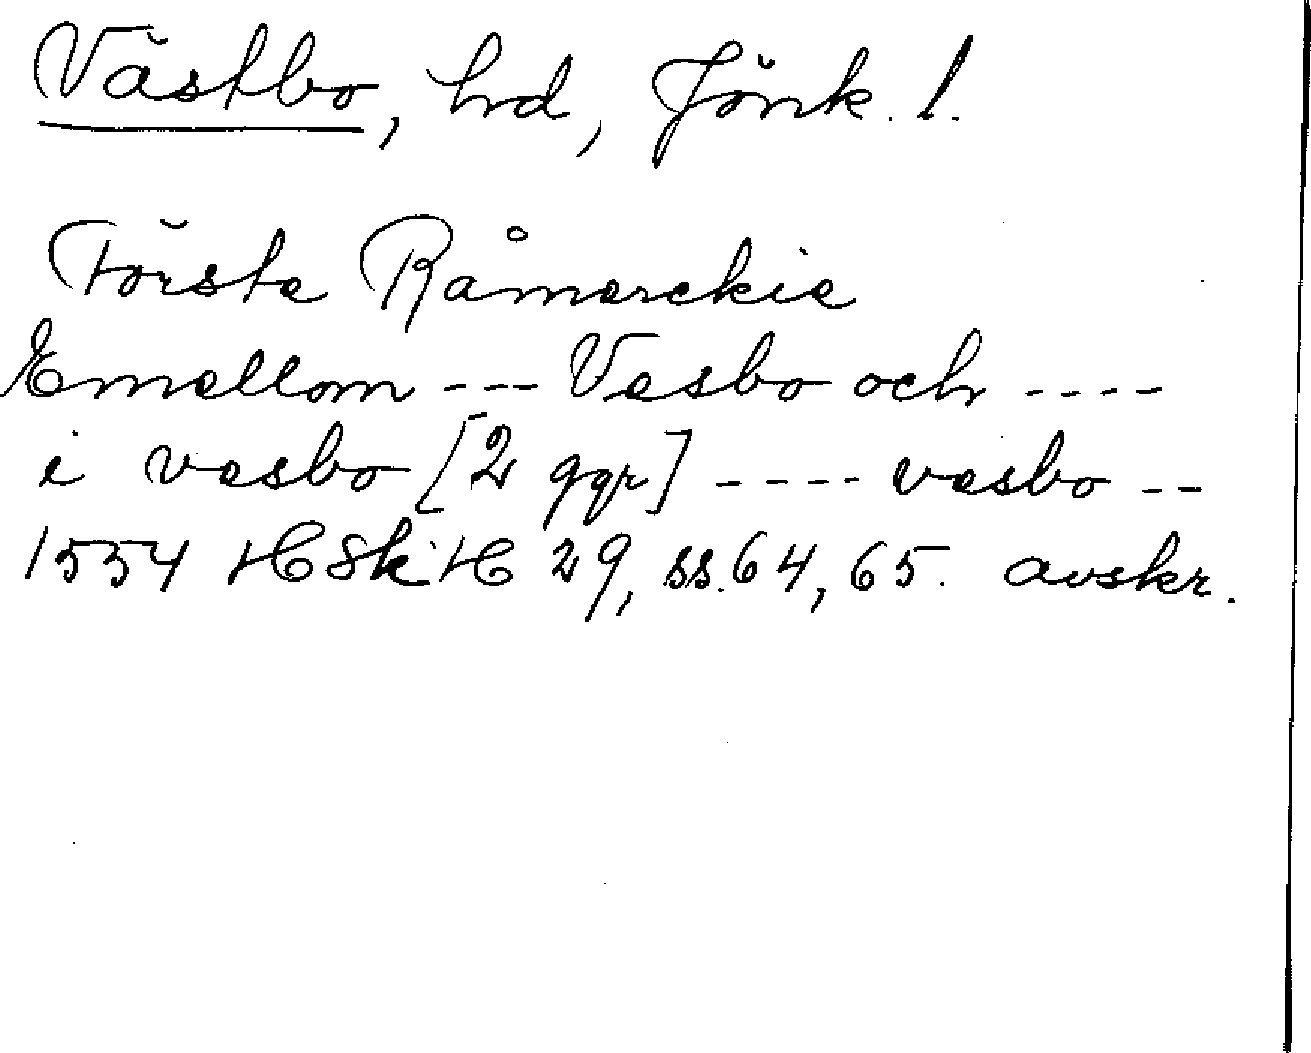 Västbo, hrd, Jönk. l.
Första Råmerckie
Emellom --- Vesbo och ----
i vesbo [2 ggr] ---- vesbo --
1554 HSkH 29, ss. 64, 65. avskr.